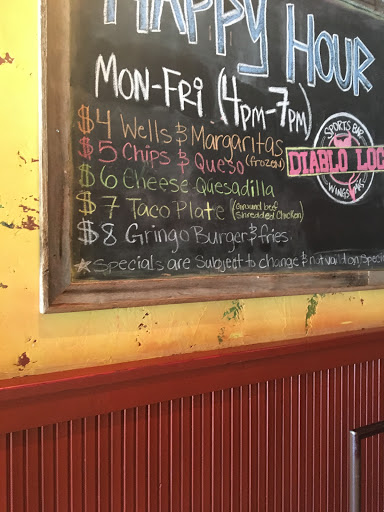 HAPPY HOUR
MON-FRI (4pm-7pm)
$4 Wells & Margaritas
(frozen)
$5 Chips & Queso
$6 Cheese Quesadilla
$7 Taco Plate (Ground beef
shredded chicken)
$8 Gringo Burger & fries
*Specials are subject to change & not valid on
SPORTS BAR
DIABLO LOC
WINGS